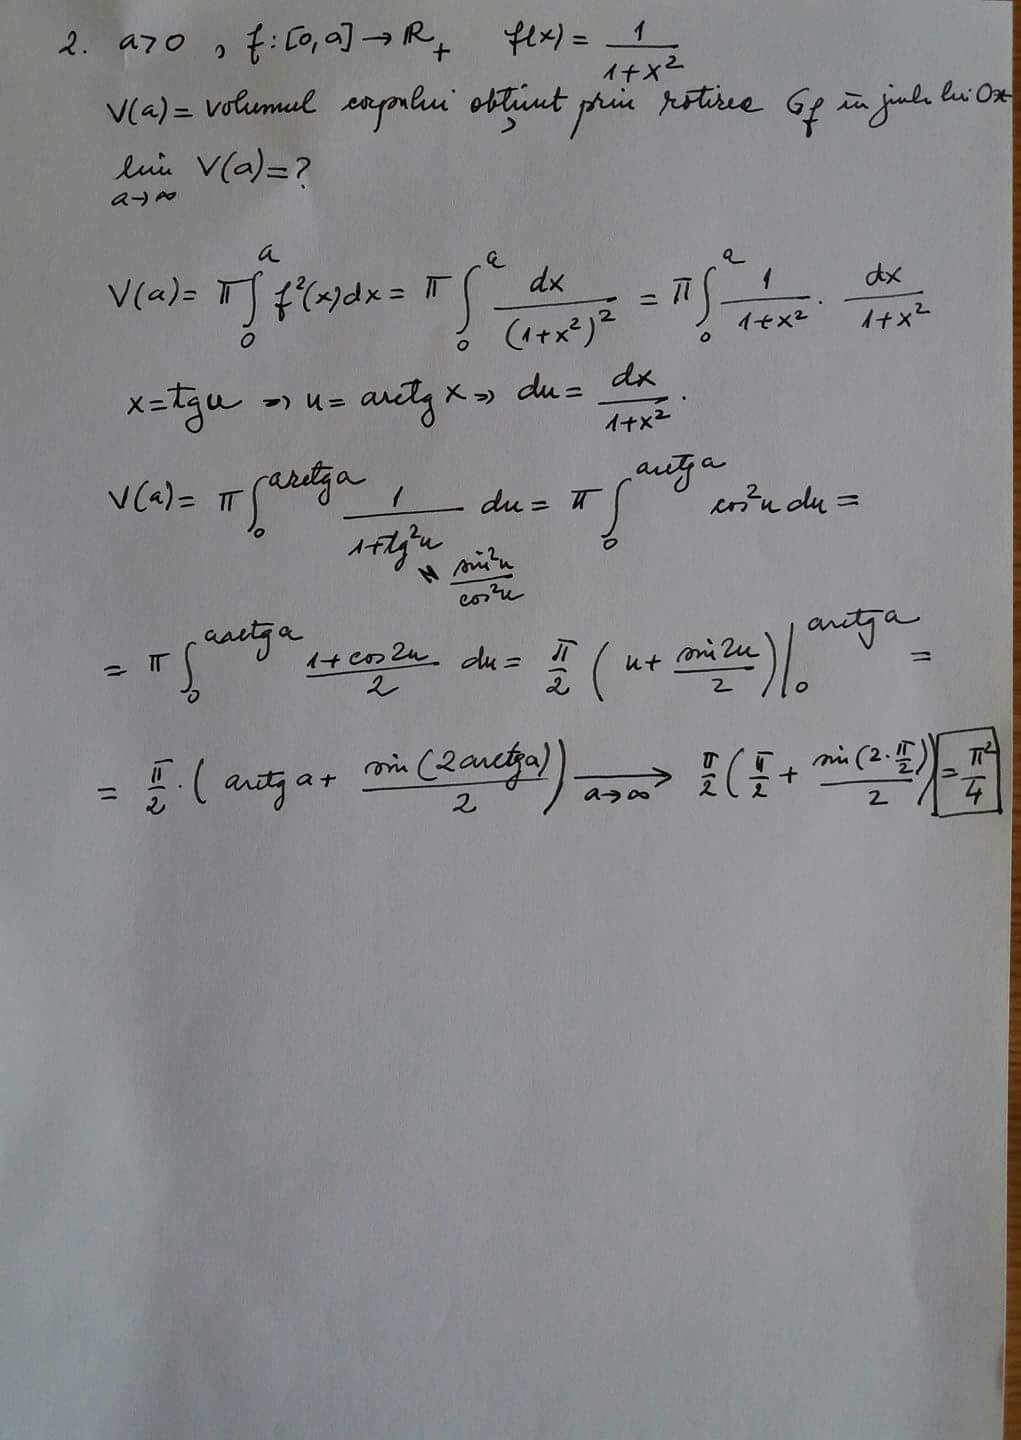 2. a>0, f:[0,a]→ℝ₊ f(x)=1/(1+x²)
V(a)= volumul corpului obținut prin rotirea Gf în jurul lui Ox
lim_{a→∞} V(a)=?
V(a)= π∫₀ᵃ f²(x)dx = π∫₀ᵃ dx/(1+x²)² = π∫₀ᵃ 1/(1+x²) · dx/(1+x²)
x=tgu ⇒ u=arctg x ⇒ du= dx/(1+x²).
V(a)= π∫₀^{arctga} 1/(1+tg²u) du = π∫₀^{arctga} cos²u du =
sin²u/cos²u
= π∫₀^{arctga} (1+cos2u)/2 du = π/2 (u+ sin2u/2)|₀^{arctga} =
= π/2 · (arctg a+ sin(2arctga)/2) →_{a→∞} π/2 (π/2 + sin(2·π/2)/2) = π²/4